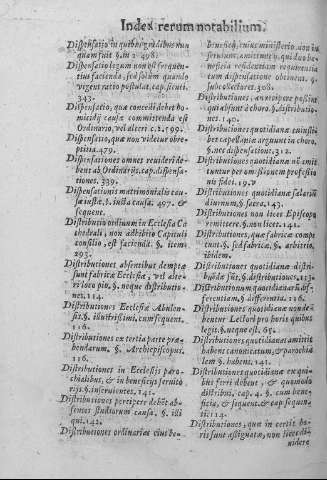 Index rerum notabilium.
Dispensatio in quibus gradibus non
quam fuit §. in 2 498.
Dispensatio legum non est frequen-
tius facienda, sed solum quando
vigens ratio postulat. cap. sicuti
343.
Dispensatio, quæ concedi debet ho-
micidij causæ committenda est
Ordinario, vel alteri c. 2. 599.
Dispensatio, quæ non videtur obre-
ptitia. 479.
Dispensationes omnes
bent ab Ordinarijs. cap. dispensa-
tiones. 339.
Dispensationis matrimonialis cau-
sæ iustæ, §. iusta causa. 497. &
sequent.
Distributio ordinum in Ecclesia Ca
thedrali, non adhibito Capituli
consilio, est facienda. §. item
293.
Distributiones absentibus demptæ
sunt fabricæ Ecclesiæ, vel alte-
ri loco pio. §. neque distributio-
nes. 114.
Distributiones Ecclesiæ Abulen-
sis. §. illustrissimi. cum sequent.
116.
Distributiones ex tertia parte præ-
bendarum. §. Archiepiscopus.
116.
Distributiones in Ecclesijs paro-
chialibus, & in beneficijs servito
rijs §. inservientes. 141.
Distributiones percipere debet ab-
sens studiorum causa. §. illi
qui. 142.
Distributiones ordinariæ eius be-
neficij, cuius ministerio, non in
servium, amittit §. qui duo be-
neficia residentiam requirentia
cum dispensatione obtinent. §.
subcollectores. 308.
Distributiones, an recipere possint
qui absunt à choro. §. distributio-
nes. 140.
Distributiones quotidianæ
ber capellaniæ arguunt in choro,
§. sed dispensationes. 312.
Distributiones quotidianæ nū omit
tuntur per omissionem professio
nis fidei. 19.
Distributiones quotidianæ salariū
diurnum, §. sacra. 143.
Distributiones non licet Episcopo
remittere. §. non licet. 141.
Distributiones, quæ fabricæ compe
tunt. §. sed fabricæ, §. arbitrio,
ibidem.
Distributiones quotidianæ distri-
buēdæ sūt. §. distributiones. 113.
Distributionum quotidianarū dif-
ferentiam, § differentia. 116.
Distributiones quotidianæ non de-
bentur Lectori pro horis quibus
legit. §. neque est. 65.
Distributiones quotidianas amittit
habens canonicatum, & parochia
lem §. habens. 141.
Distributiones quotidianæ ex qui
bus ferri debent, & quomodo
distribui, cap. 4. §. cum bene-
ficia, & sequent. & cap. sequen-
ti. 114.
Distributiones, quæ in certis ho-
ris sunt assignatæ, non licet di-
videre